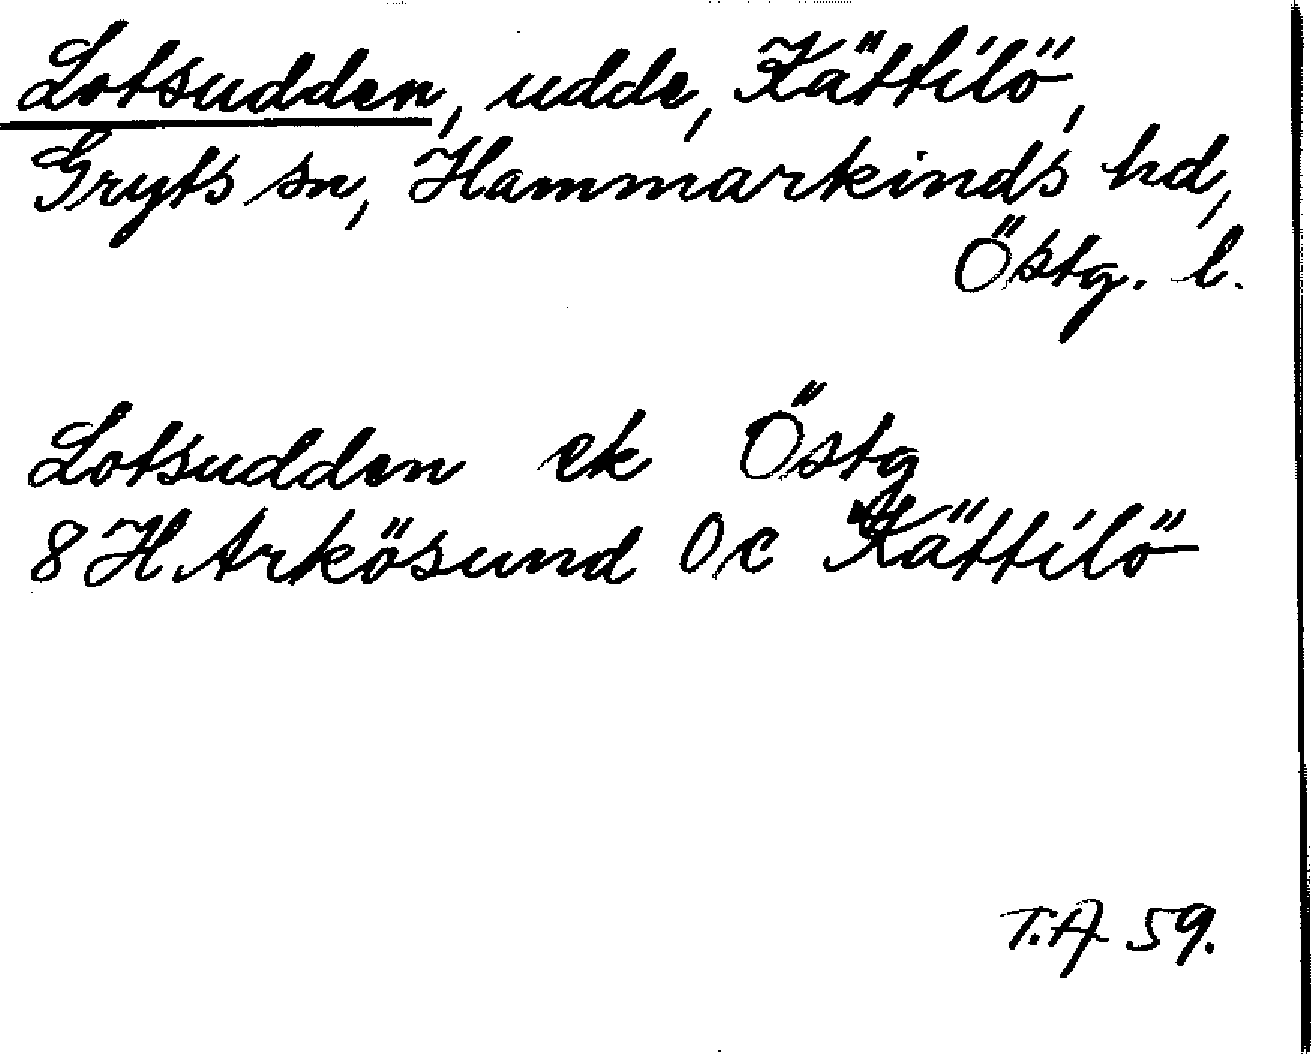 Lotsudden, udde, Kättilö,
Gryts sn, Hammarkinds hd,
Östg. l.
Lotsudden ek Östg
8 H Arkösund 0 c Kättilö
T.A 59.